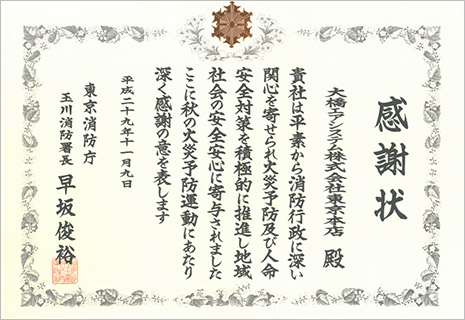 感謝状
大橋エアシステム株式会社東京本店 殿
貴社は平素から消防行政に深い
関心を寄せられ火災予防及び人命
安全対策を積極的に推進し地域
社会の安全安心に寄与されました
ここに秋の火災予防運動にあたり
深く感謝の意を表します
平成二十九年十一月九日
東京消防庁
玉川消防署長 早坂俊裕